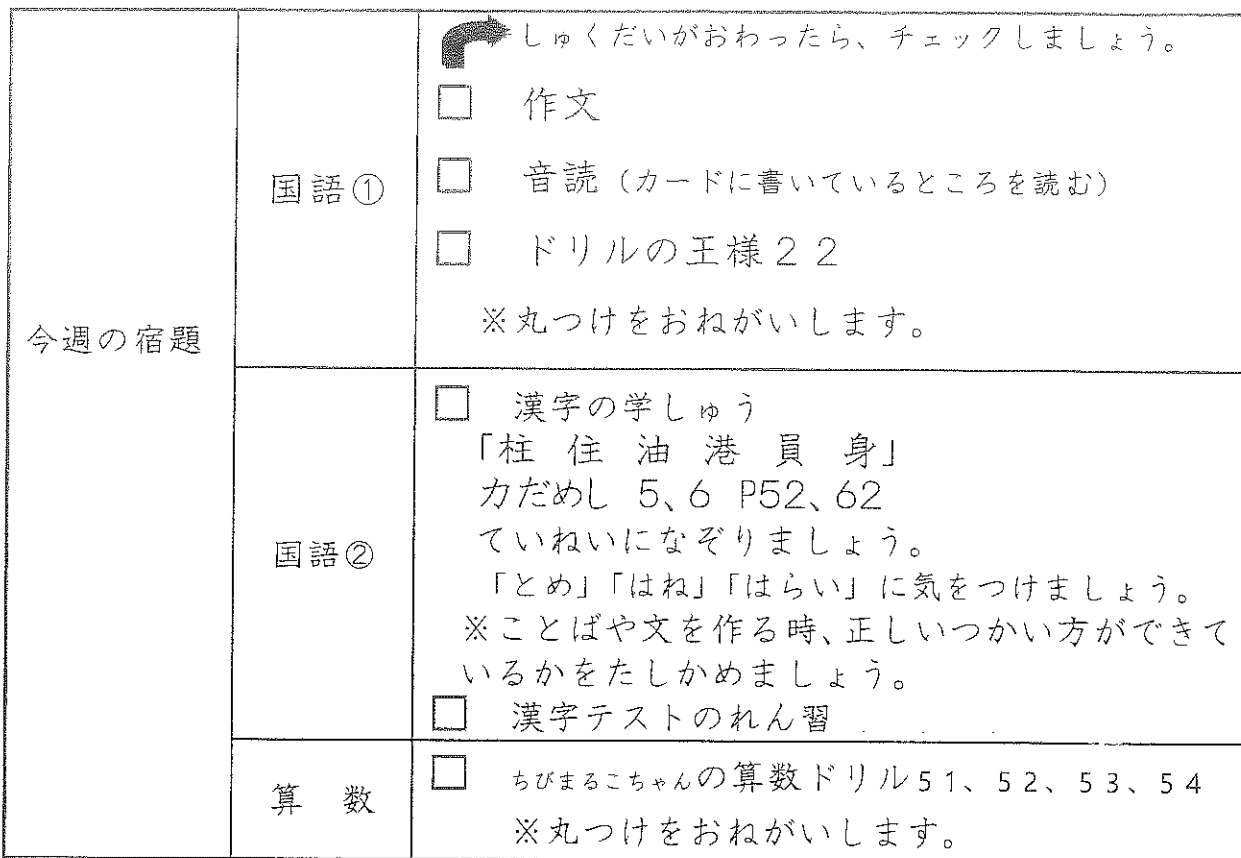 今週の宿題
国語①
しゅくだいがおわったら、チェックしましょう。
□ 作文
□ 音読(カードに書いているところを読む)
□ ドリルの王様22
※丸つけをおねがいします。
国語②
□ 漢字の学しゅう
「柱 住 油 港 員 身」
力だめし 5、6 P52、62
ていねいになぞりましょう。
「とめ」「はね」「はらい」に気をつけましょう。
※ことばや文を作る時、正しいつかい方ができて
いるかをたしかめましょう。
□ 漢字テストのれん習
算 数
□ ちびまるこちゃんの算数ドリル51、52、53、54
※丸つけをおねがいします。